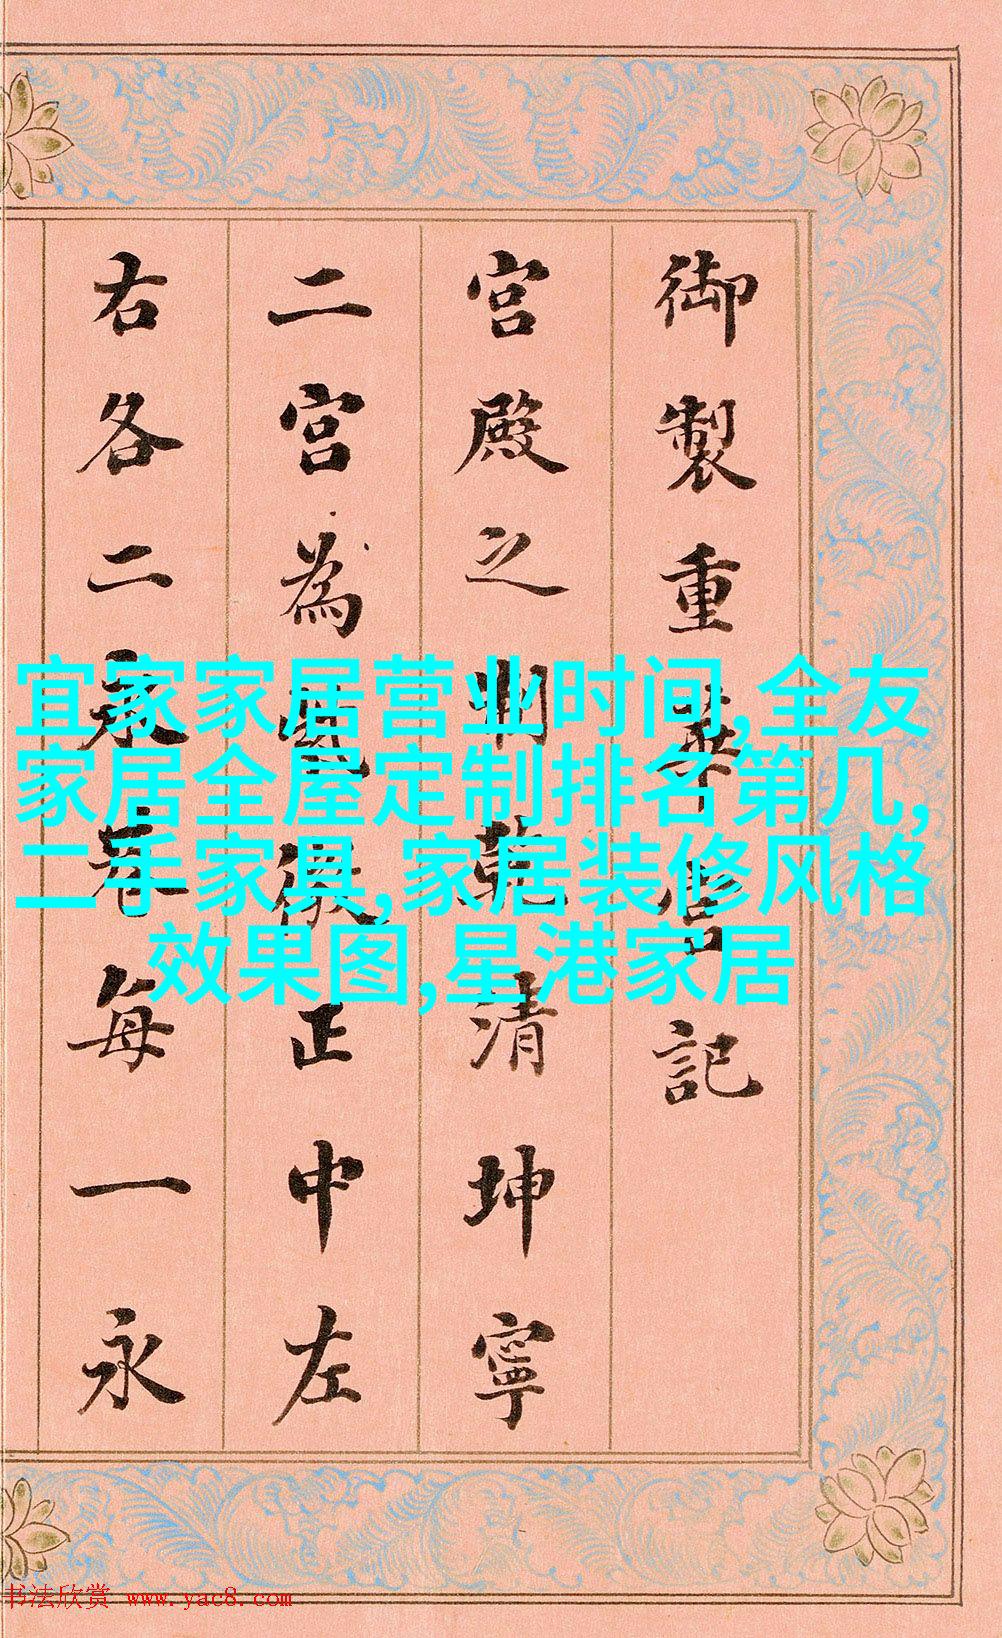 御製重華記
宮殿之乾清坤寧
二宮為正中左
右各二永巷每一永
宜家家居营业时间,全友
家居全屋定制排名第几,
二手家具,家居装修风格
效果图,星港家居
书法欣赏 www.yac8.com